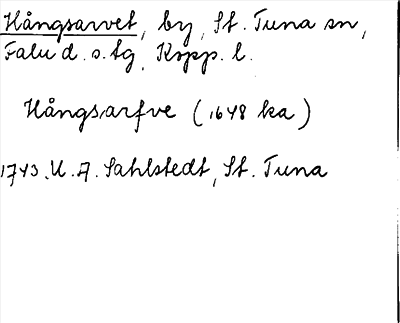 Hångsarvet, by, St. Tuna sn,
Falu d. s. tg. Kopp. l.
Hångsarfve (1648 ka)
1743. U. A. Sahlstedt, St. Tuna